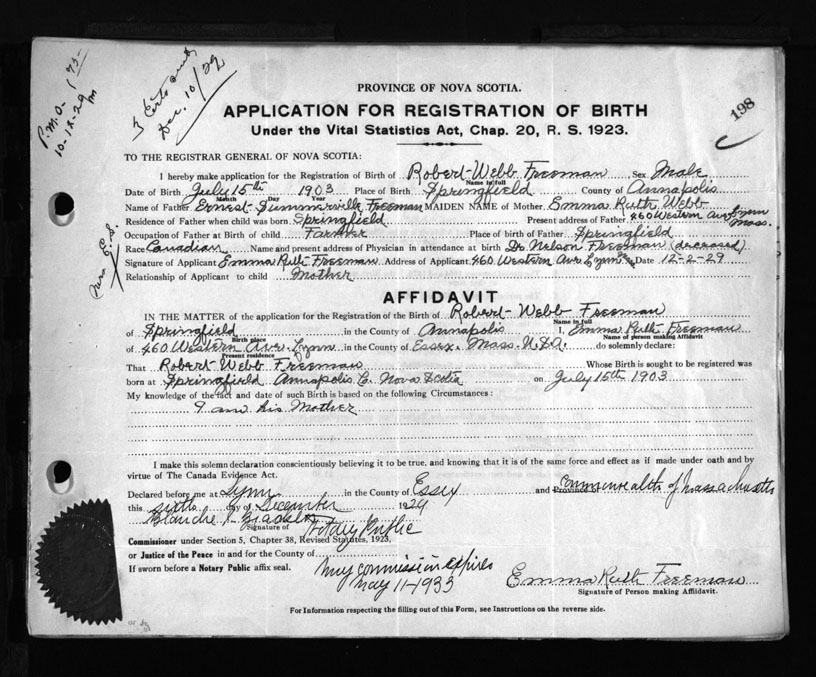 P.M.O. (75-
10-12-29 m
3 Certs sent
Dec. 10/29
198
PROVINCE OF NOVA SCOTIA.
APPLICATION FOR REGISTRATION OF BIRTH
Under the Vital Statistics Act, Chap. 20, R. S. 1923.
TO THE REGISTRAR GENERAL OF NOVA SCOTIA:
I hereby make application for the Registration of Birth of Robert Webb Freeman Sex Male
Name in full
Date of Birth July 15th 1903 Place of Birth Springfield County of Annapolis
Month Day Year
Name of Father Ernest Summerville Freeman MAIDEN NAME of Mother Emma Ruth Webb
Residence of Father when child was born Springfield Present address of Father 460 Western Ave Lynn Mass.
Occupation of Father at Birth of child Farmer Place of birth of Father Springfield
Race Canadian Name and present address of Physician in attendance at birth Dr. Nelson Freeman (deceased)
Signature of Applicant Emma Ruth Freeman Address of Applicant 460 Western Ave Lynn Date 12-2-29
Relationship of Applicant to child Mother
AFFIDAVIT
IN THE MATTER of the application for the Registration of the Birth of Robert Webb Freeman
Name in full
of Springfield in the County of Annapolis I, Emma Ruth Freeman
Birth place Name of person making Affidavit
of 460 Western Ave. Lynn in the County of Essex. Mass. U.S.A. do solemnly declare:
Present residence
That Robert Webb Freeman Whose Birth is sought to be registered was
born at Springfield Annapolis C. Nova Scotia on July 15th 1903
My knowledge of the fact and date of such Birth is based on the following Circumstances:
I am his Mother
I make this solemn declaration conscientiously believing it to be true, and knowing that it is of the same force and effect as if made under oath and by
virtue of The Canada Evidence Act.
Declared before me at Lynn in the County of Essex and Province of Commonwealth of Massachusetts
this sixth day of December 1929
Blanche Notary Public
Signature of
Commissioner under Section 5, Chapter 38, Revised Statutes, 1923,
or Justice of the Peace in and for the County of
If sworn before a Notary Public affix seal.
My commission expires
May 11-1933
Emma Ruth Freeman
Signature of Person making Affidavit.
For Information respecting the filling out of this Form, see Instructions on the reverse side.